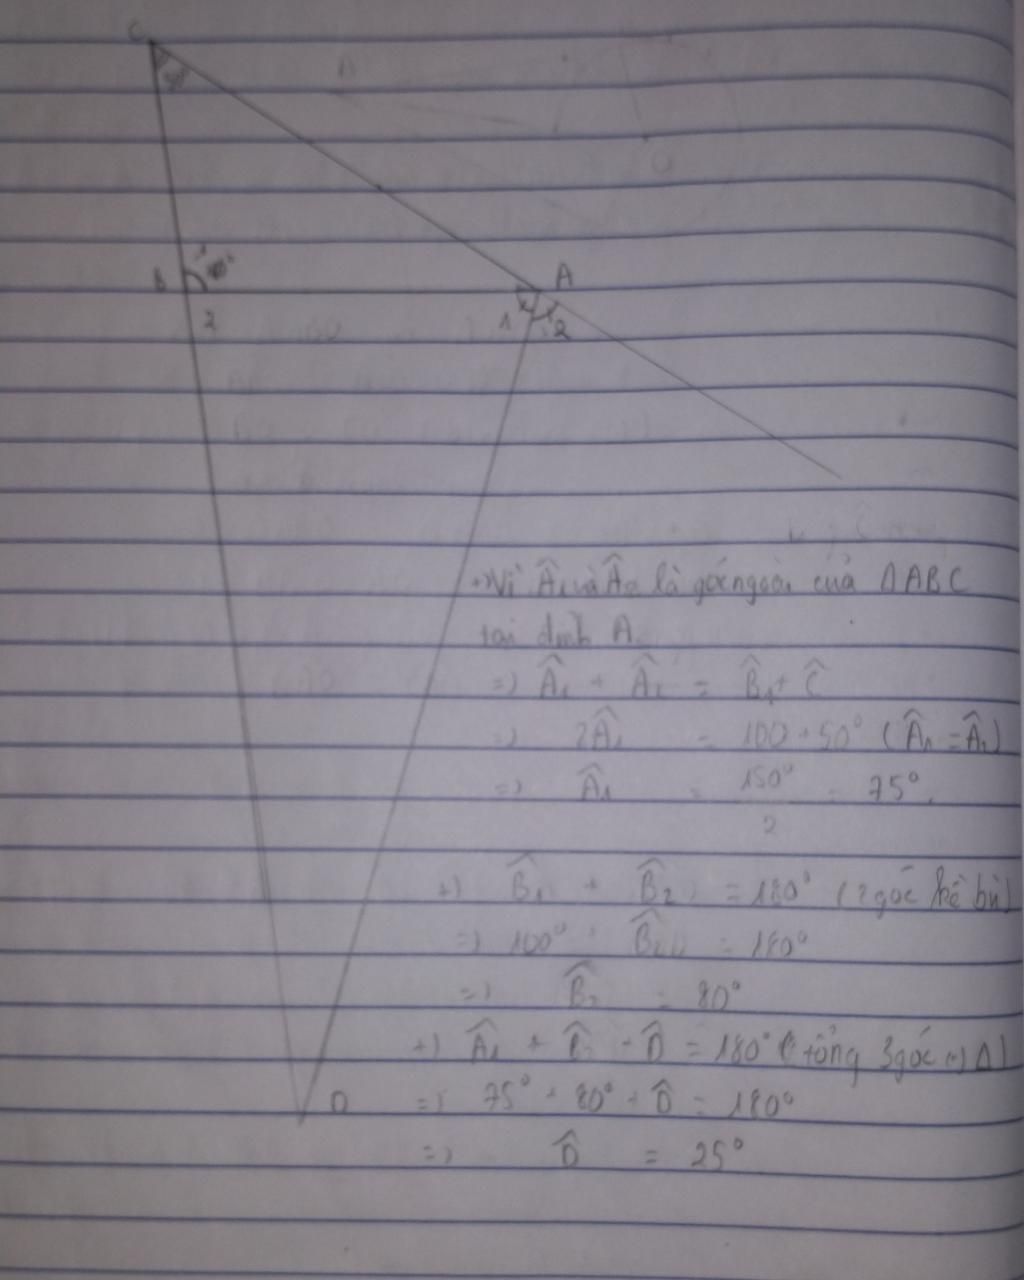 C
B 1
2
A
1 2
+) Vì Â₁ và Â₂ là góc ngoài của ΔABC
tại đỉnh A.
=) Â₁ + Â₂ = B̂₁ + Ĉ
=) 2Â₁ = 100 + 50° (Â₁ = Â₂)
=) Â₁ = 150°/2 = 75°.
+) B̂₁ + B̂₂ = 180° (2 góc kề bù)
=) 100° + B̂₂ = 180°
=) B̂₂ = 80°
+) Â₁ + B̂₂ + D̂ = 180° (tổng 3 góc Δ)
D =) 75° + 80° + D̂ = 180°
=) D̂ = 25°